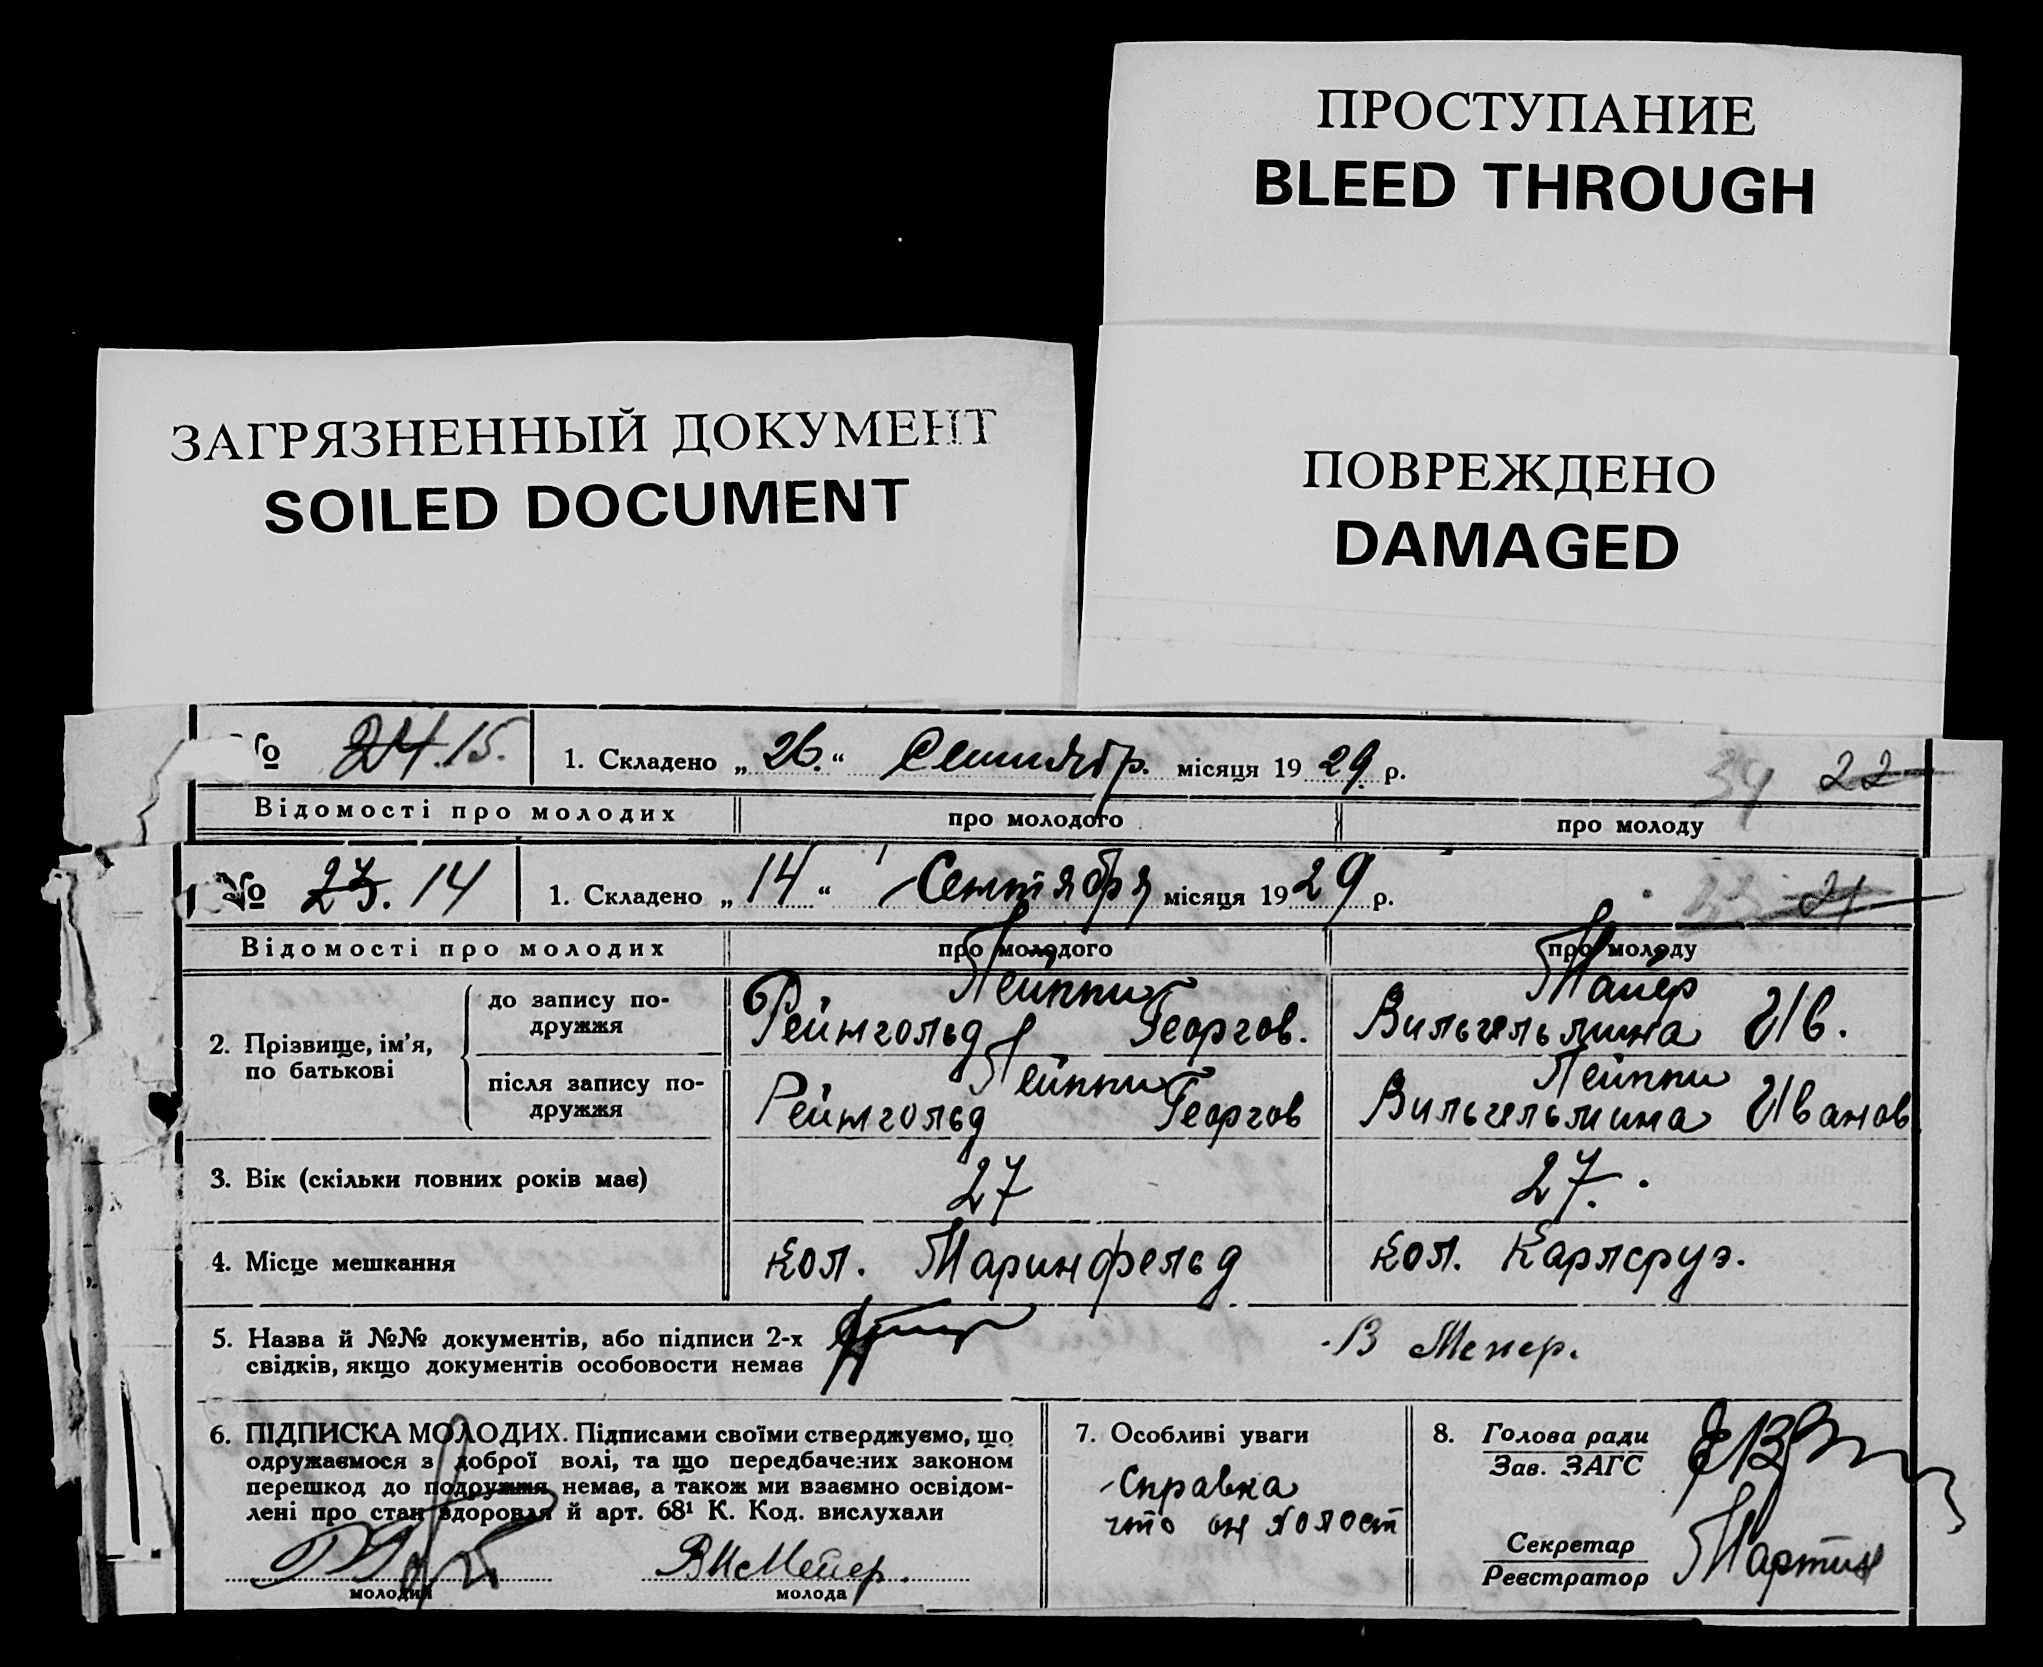 ПРОСТУПАНИЕ
BLEED THROUGH
ЗАГРЯЗНЕННЫЙ ДОКУМЕНТ
SOILED DOCUMENT
ПОВРЕЖДЕНО
DAMAGED
№ 24. 15. 1. Складено „ 26. “ Сентябр. місяця 19 29 р. 34 22
Відомості про молодих про молодого про молоду
№ 23. 14 1. Складено „ 14 “ Сентября місяця 19 29 р. 21
Відомості про молодих про молодого про молоду
2. Прізвище, ім’я, по батькові
до запису подружжя
Лейппи
Рейнгольд Георгов.
Майер
Вильгельмина Ив.
після запису подружжя
Лейппи
Рейнгольд Георгов
Лейппи
Вильгельмина Иванов
3. Вік (скільки повних років має) 27 27.
4. Місце мешкання кол. Маринфельд кол. Карлсруэ.
5. Назва й №№ документів, або підписи 2-х
свідків, якщо документів особовости немає
В Меиер.
6. ПІДПИСКА МОЛОДИХ. Підписами своїми стверджуємо, що
одружаємося з доброї волі, та що передбачених законом
перешкод до подружжя немає, а також ми взаємно освідом-
лені про стан здоровля й арт. 68¹ К. Код. вислухали
молодий
Мейер.
молода
7. Особливі уваги
Справка
что он холост
8. Голова ради
Зав. ЗАГС
Секретар
Реєстратор
Мартин